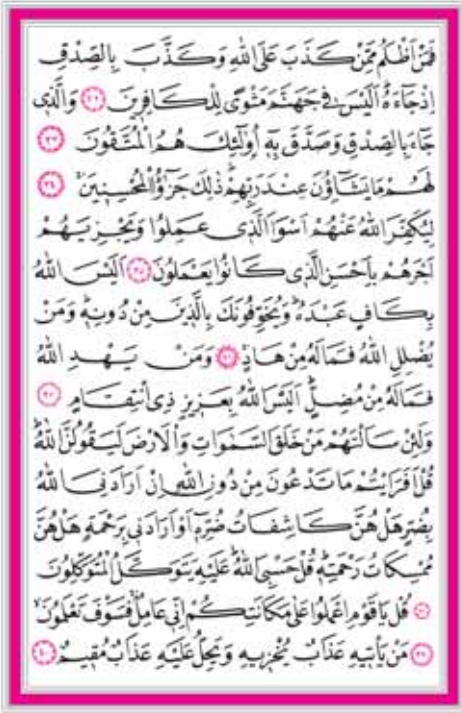 فَمَنْ اَظْلَمُ مِمَّنْ كَذَبَ عَلَى اللهِ وَكَذَّبَ بِالصِّدْقِ
اِذْ جَٓاءَهُ اَلَيْسَ فٖي جَهَنَّمَ مَثْوًى لِلْكَافِرٖينَ ﴿٣٢﴾ وَالَّذٖي
جَٓاءَ بِالصِّدْقِ وَصَدَّقَ بِهٖٓ اُولٰٓئِكَ هُمُ الْمُتَّقُونَ ﴿٣٣﴾
لَهُمْ مَا يَشَٓاؤُ۫نَ عِنْدَ رَبِّهِمْ ذٰلِكَ جَزٰٓؤُا الْمُحْسِنٖينَ ﴿٣٤﴾
لِيُكَفِّرَ اللهُ عَنْهُمْ اَسْوَاَ الَّذٖي عَمِلُوا وَيَجْزِيَهُمْ
اَجْرَهُمْ بِاَحْسَنِ الَّذٖي كَانُوا يَعْمَلُونَ ﴿٣٥﴾ اَلَيْسَ اللهُ
بِكَافٍ عَبْدَهُ وَيُخَوِّفُونَكَ بِالَّذٖينَ مِنْ دُونِهٖ وَمَنْ
يُضْلِلِ اللهُ فَمَا لَهُ مِنْ هَادٍ ﴿٣٦﴾ وَمَنْ يَهْدِ اللهُ
فَمَا لَهُ مِنْ مُضِلٍّ اَلَيْسَ اللهُ بِعَزٖيزٍ ذِي انْتِقَامٍ ﴿٣٧﴾
وَلَئِنْ سَاَلْتَهُمْ مَنْ خَلَقَ السَّمٰوَاتِ وَالْاَرْضَ لَيَقُولُنَّ اللهُ
قُلْ اَفَرَاَيْتُمْ مَا تَدْعُونَ مِنْ دُونِ اللهِ اِنْ اَرَادَنِيَ اللهُ
بِضُرٍّ هَلْ هُنَّ كَاشِفَاتُ ضُرِّهٖٓ اَوْ اَرَادَنٖي بِرَحْمَةٍ هَلْ هُنَّ
مُمْسِكَاتُ رَحْمَتِهٖ قُلْ حَسْبِيَ اللهُ عَلَيْهِ يَتَوَكَّلُ الْمُتَوَكِّلُونَ
﴿٣٨﴾ قُلْ يَا قَوْمِ اعْمَلُوا عَلٰى مَكَانَتِكُمْ اِنّٖي عَامِلٌ فَسَوْفَ تَعْلَمُونَ
﴿٣٩﴾ مَنْ يَاْتٖيهِ عَذَابٌ يُخْزٖيهِ وَيَحِلُّ عَلَيْهِ عَذَابٌ مُقٖيمٌ ﴿٤٠﴾